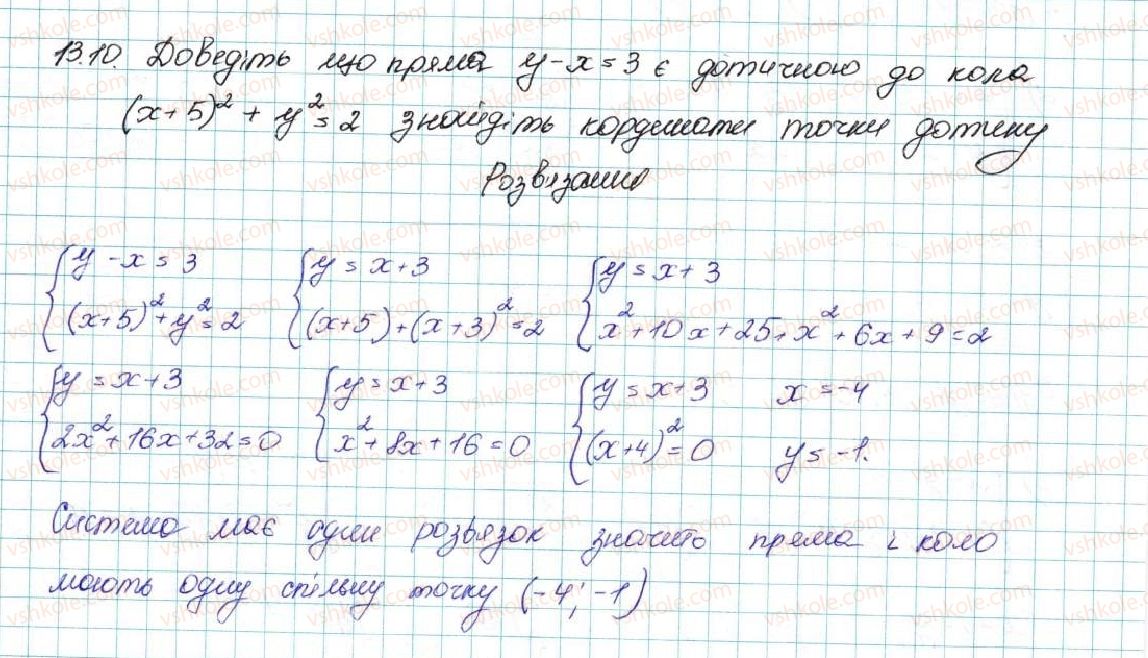 13.10. Доведіть що пряма y - x = 3 є дотичною до кола
(x+5)² + y² = 2 знайдіть кордимати точки дотику
Розвязання
{ y - x = 3 { y = x + 3 { y = x + 3
{ (x+5)² + y² = 2 { (x+5) + (x+3)² = 2 { x² + 10x + 25 + x² + 6x + 9 = 2
{ y = x + 3 { y = x + 3 { y = x + 3 x = -4
{ 2x² + 16x + 32 = 0 { x² + 8x + 16 = 0 { (x+4)² = 0 y = -1.
Система має один розвязок значить пряма і коло
мають одну спільну точку (-4; -1)